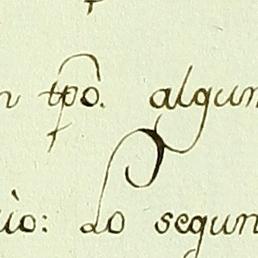 n tpõ. algun
uio: Lo segun